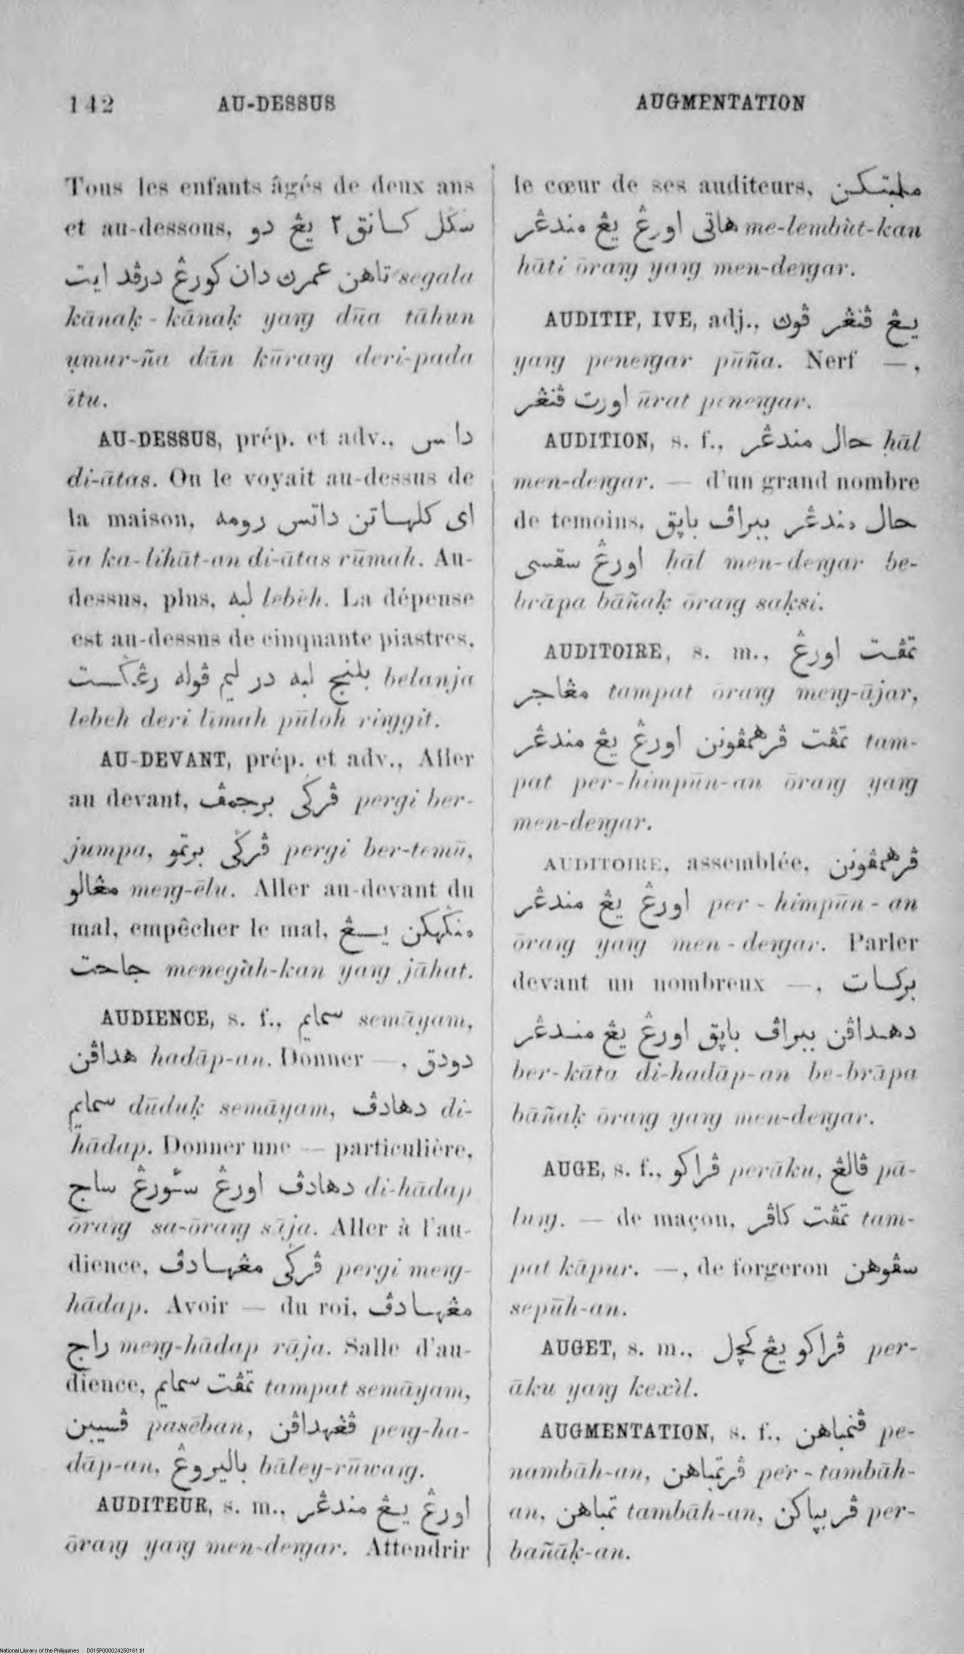 142 AU-DESSUS AUGMENTATION
Tous les enfants âgés de deux ans
et au-dessous, سݢل كانق٢ يڠ دو
تاهن عمرڽ دان كورڠ درڤد ايت segala
kānaḳ-kānaḳ yaŋ dūa tāhun
umur-ña dān kūraŋ deri-pada
ītu.
AU-DESSUS, prép. et adv.,
di-ātas. On le voyait au-dessus de
la maison, اى كليهاتن داتس رومه
īa ka-līhāt-an di-ātas rūmah. Au-
dessus, plus, لبه lebèh. La dépense
est au-dessus de cinquante piastres,
بلنج لبه در ليم ڤوله رڠݢت belanja
lebèh deri līmah pūloh riŋgit.
AU-DEVANT, prép. et adv., Aller
au devant, ڤرݢى برجمڤ pergi ber-
jumpa, ڤرݢى برتمو pergi ber-temū,
مڠالو meŋ-ēlu. Aller au-devant du
mal, empêcher le mal, منݢهكن يڠ
جاحت menegàh-kan yaŋ jāhat.
AUDIENCE, s. f., سمايم semāyam,
هداڤن hadāp-an. Donner —, دودق
سمايم dūduḳ semāyam, دهادڤ di-
hādap. Donner une — particulière,
دهادڤ اورڠ سأورڠ ساج di-hādap
ōraŋ sa-ōraŋ sāja. Aller à l'au-
dience, ڤرݢى مڠهادڤ pergi meŋ-
hādap. Avoir — du roi, مڠهادڤ
راج meŋ-hādap rāja. Salle d'au-
dience, تمڤت سمايم tampat semāyam,
ڤسيبن pasēban, ڤڠهداڤن peŋ-ha-
dāp-an, باليروڠ bāley-rūwaŋ.
AUDITEUR, s. m., اورڠ يڠ مندڠر
ōraŋ yaŋ men-deŋar. Attendrir
le cœur de ses auditeurs, ملمبتكن
هاتى اورڠ يڠ مندڠر me-lembùt-kan
hāti ōraŋ yaŋ men-deŋar.
AUDITIF, IVE, adj., يڠ ڤنڠر ڤون
yaŋ peneŋar pūña. Nerf —,
اورت ڤنڠر ūrat peneŋar.
AUDITION, s. f., حال مندڠر hāl
men-deŋar. — d'un grand nombre
de temoins, حال مندڠر ببراڤ باڽق
اورڠ سقسى hāl men-deŋar be-
brāpa bāñaḳ ōraŋ saḳsi.
AUDITOIRE, s. m., تمڤت اورڠ
مڠاجر tampat ōraŋ meŋ-ājar,
تمڤت ڤرهمڤونن اورڠ يڠ مندڠر tam-
pat per-himpūn-an ōraŋ yaŋ
men-deŋar.
AUDITOIRE, assemblée, ڤرهمڤونن
اورڠ يڠ مندڠر per-himpūn-an
ōraŋ yaŋ men-deŋar. Parler
devant un nombreux —, بركات
دهداڤن ببراڤ باڽق اورڠ يڠ مندڠر
ber-kāta di-hadāp-an be-brāpa
bāñaḳ ōraŋ yaŋ men-deŋar.
AUGE, s. f., ڤراكو perāku, ڤالڠ pā-
luŋ. — de maçon, تمڤت كاڤر tam-
pat kāpur. —, de forgeron سڤوهن
sepūh-an.
AUGET, s. m., ڤراكو يڠ كچل per-
āku yaŋ kexìl.
AUGMENTATION, s. f., ڤنمباهن pe-
nambāh-an, ڤرتمباهن per-tambāh-
an, تمباهن tambāh-an, ڤرباڽاكن per-
bañāḳ-an.
National Library of the Philippines